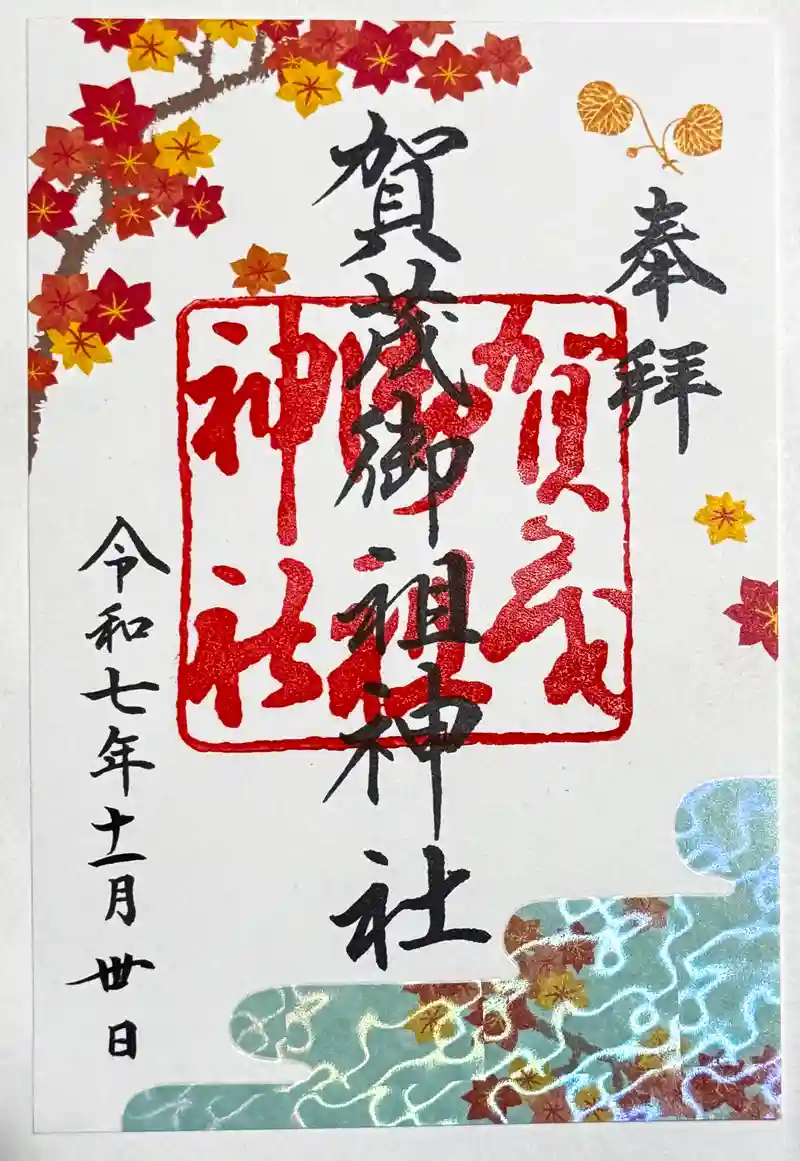 奉拝
賀茂御祖神社
賀茂
御祖
神社
令和七年十一月丗日